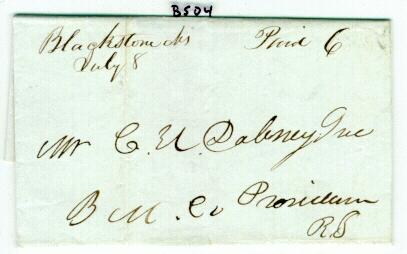 B504
Blackstone Ms Paid 6
July 8
Mr C. U. Dabney
B M. Co Providence
R. I